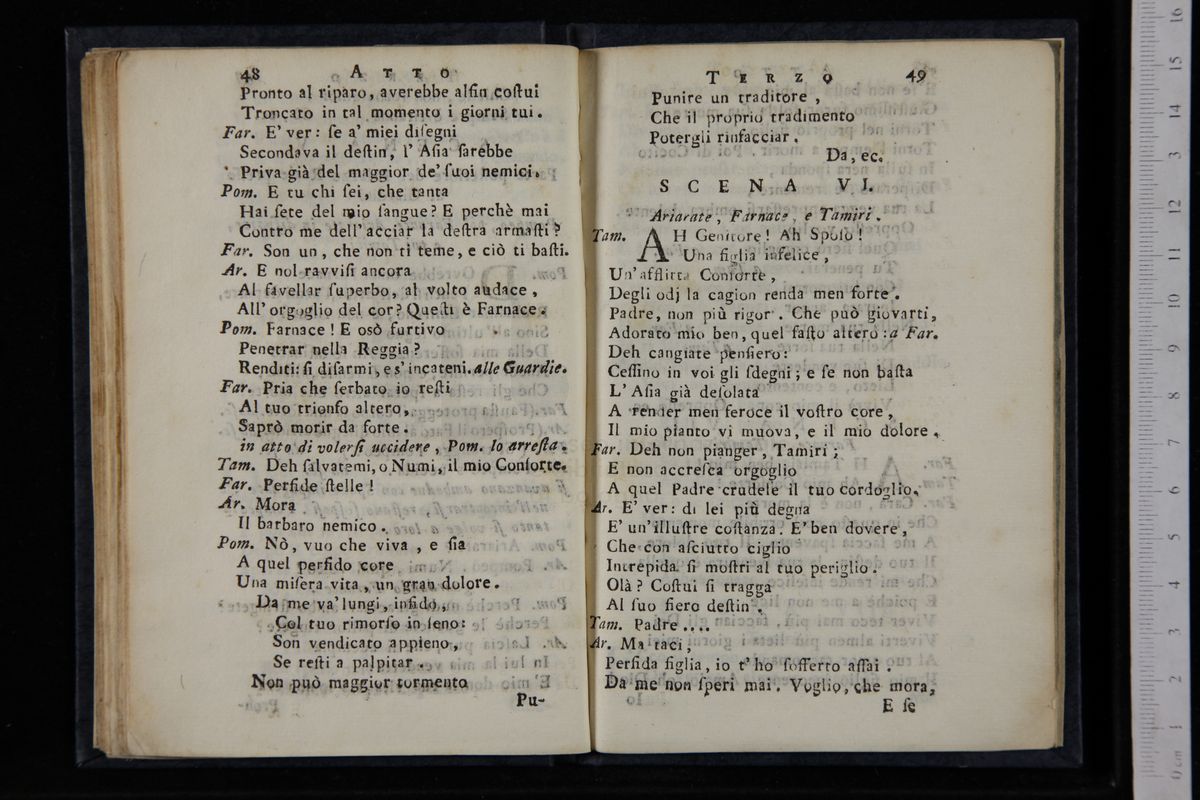 48 ATTO
Pronto al riparo, averebbe alfin coſtui
Troncato in tal momento i giorni tui.
Far. E' ver: ſe a' miei diſegni
Secondava il deſtin, l' Aſia ſarebbe
Priva già del maggior de' ſuoi nemici.
Pom. E tu chi ſei, che tanta
Hai ſete del mio ſangue? E perchè mai
Contro me dell' acciar la deſtra armaſti?
Far. Son un, che non ti teme, e ciò ti baſti.
Ar. E nol ravviſi ancora
Al favellar ſuperbo, al volto audace,
All' orgoglio del cor? Queſti è Farnace.
Pom. Farnace! E osò furtivo
Penetrar nella Reggia?
Renditi: ſi diſarmi, e s' incateni. alle Guardie.
Far. Pria che ſerbato io reſti
Al tuo trionfo altero,
Saprò morir da forte.
in atto di volerſi uccidere, Pom. lo arreſta.
Tam. Deh ſalvatemi, o Numi, il mio Conſorte.
Far. Perfide ſtelle!
Ar. Mora
Il barbaro nemico.
Pom. Nò, vuo che viva, e ſia
A quel perfido core
Una miſera vita, un gran dolore.
Da me va' lungi, infido,
Col tuo rimorſo in ſeno:
Son vendicato appieno,
Se reſti a palpitar.
Non può maggior tormento
Pu-
TERZO 49
Punire un traditore,
Che il proprio tradimento
Potergli rinfacciar.
Da, ec.
SCENA VI.
Ariarate, Farnace, e Tamiri.
Tam. AH Genitore! Ah Spoſo!
Una figlia infelice,
Un' afflitta Conſorte,
Degli odj la cagion renda men forte.
Padre, non più rigor. Che può giovarti,
Adorato mio ben, quel faſto altero: a Far.
Deh cangiate penſiero:
Ceſſino in voi gli ſdegni; e ſe non baſta
L' Aſia già deſolata
A render men feroce il voſtro core,
Il mio pianto vi muova, e il mio dolore.
Far. Deh non pianger, Tamiri;
E non accreſca orgoglio
A quel Padre crudele il tuo cordoglio.
Ar. E' ver: di lei più degna
E' un' illuſtre coſtanza. E' ben dovere,
Che con aſciutto ciglio
Intrepida ſi moſtri al tuo periglio.
Olà? Coſtui ſi tragga
Al ſuo fiero deſtin.
Tam. Padre....
Ar. Ma taci,
Perfida figlia, io t' ho ſofferto aſſai.
Da me non ſperi mai. Voglio, che mora,
E ſe